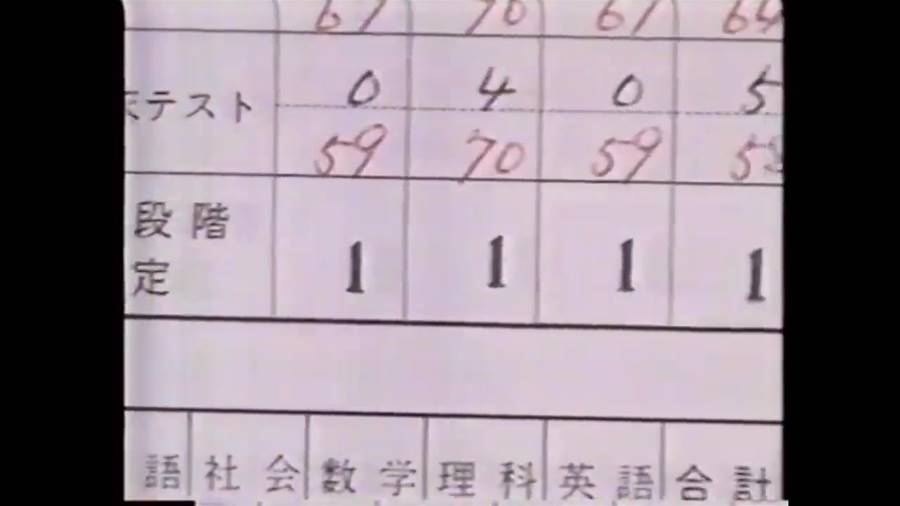 67 70 67 64
末テスト 0 4 0 5
59 70 59
段階
定 1 1 1 1
語 社会 数学 理科 英語 合計